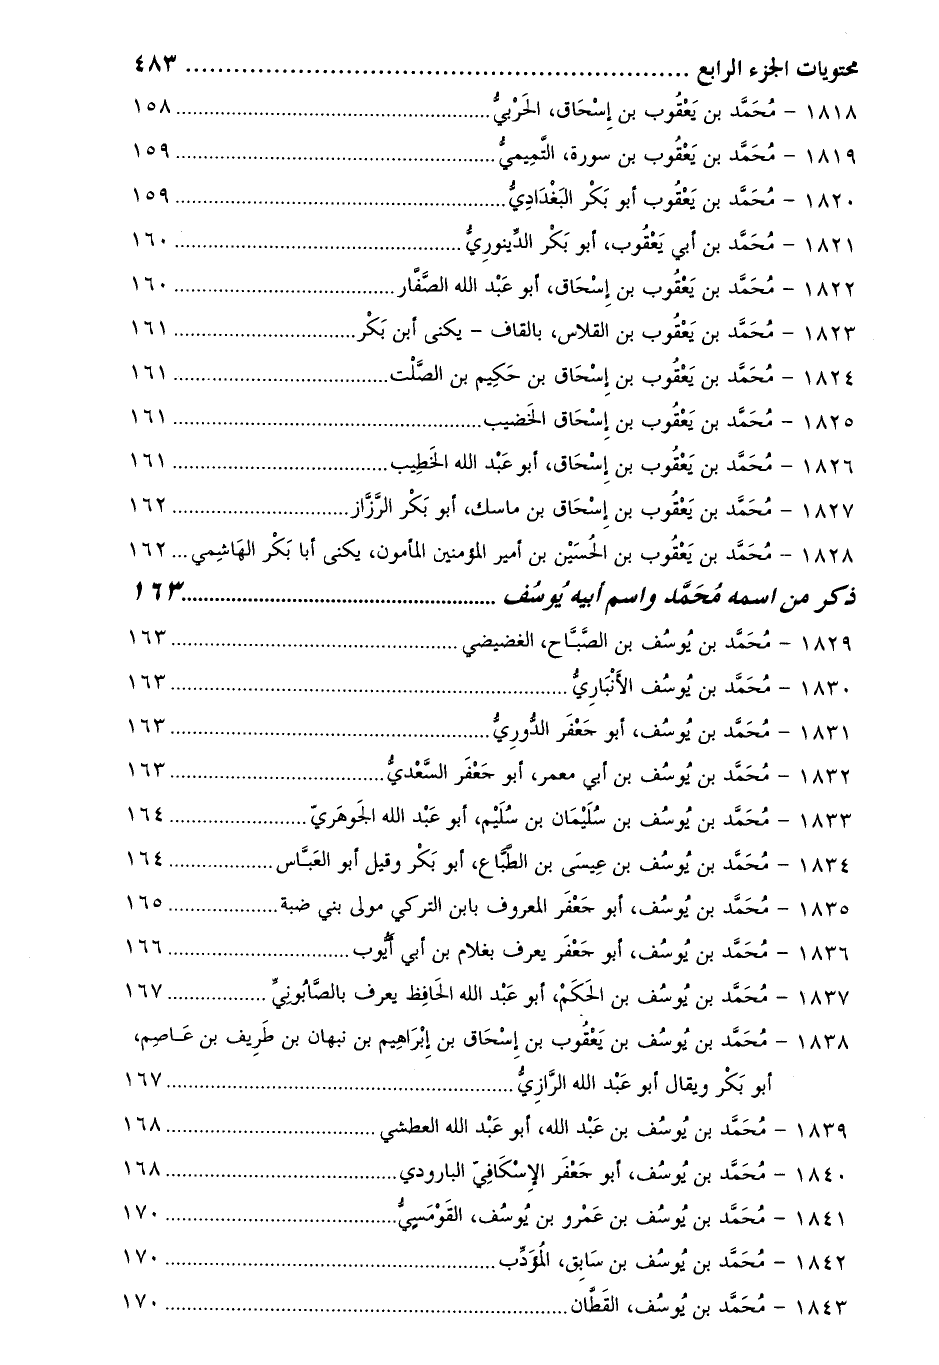 محتويات الجزء الرابع ................................................................ ٤٨٣
١٨١٨ – مُحَمَّد بن يَعْقُوب بن إسْحَاق، الحَرْبيُّ ........................................ ١٥٨
١٨١٩ – مُحَمَّد بن يَعْقُوب بن سورة، التَّمِيميُّ ........................................ ١٥٩
١٨٢٠ – مُحَمَّد بن يَعْقُوب أبو بَكْر البَغْدَادِيُّ ........................................ ١٥٩
١٨٢١ – مُحَمَّد بن أبي يَعْقُوب، أبو بَكْر الدِّينوريُّ ........................................ ١٦٠
١٨٢٢ – مُحَمَّد بن يَعْقُوب بن إسْحَاق، أبو عَبْد الله الصَّفَّار ............................ ١٦٠
١٨٢٣ – مُحَمَّد بن يَعْقُوب بن القلاس، بالقاف – يكنى أبن بَكْر ........................ ١٦١
١٨٢٤ – مُحَمَّد بن يَعْقُوب بن إسْحَاق بن حَكِيم بن الصَّلْت ............................ ١٦١
١٨٢٥ – مُحَمَّد بن يَعْقُوب بن إسْحَاق الخَضيب ........................................ ١٦١
١٨٢٦ – مُحَمَّد بن يَعْقُوب بن إسْحَاق، أبو عَبْد الله الخَطِيب ............................ ١٦١
١٨٢٧ – مُحَمَّد بن يَعْقُوب بن إسْحَاق بن ماسك، أبو بَكْر الرَّزَّاز ........................ ١٦٢
١٨٢٨ – مُحَمَّد بن يَعْقُوب بن الحُسَيْن بن أمير المؤمنين المأمون، يكنى أبا بَكْر الهَاشِمي ... ١٦٢
ذكر من اسمه مُحَمَّد واسم أبيه يُوسُف ............................................ ١٦٣
١٨٢٩ – مُحَمَّد بن يُوسُف بن الصَّبَّاح، الغضيضي ........................................ ١٦٣
١٨٣٠ – مُحَمَّد بن يُوسُف الأنْبَاريُّ .................................................... ١٦٣
١٨٣١ – مُحَمَّد بن يُوسُف، أبو جَعْفَر الدُّوريُّ ........................................ ١٦٣
١٨٣٢ – مُحَمَّد بن يُوسُف بن أبي معمر، أبو جَعْفَر السَّعْديُّ ............................ ١٦٣
١٨٣٣ – مُحَمَّد بن يُوسُف بن سُلَيْمَان بن سُلَيْم، أبو عَبْد الله الجَوهَريّ .................... ١٦٤
١٨٣٤ – مُحَمَّد بن يُوسُف بن عِيسَى بن الطَّبَّاع، أبو بَكْر وقيل أبو العَبَّاس ................ ١٦٤
١٨٣٥ – مُحَمَّد بن يُوسُف، أبو جَعْفَر المعروف بابن التركي مولى بني ضبة ................ ١٦٥
١٨٣٦ – مُحَمَّد بن يُوسُف، أبو جَعْفَر يعرف بغلام بن أبي أيُّوب ........................ ١٦٦
١٨٣٧ – مُحَمَّد بن يُوسُف بن الحَكَمْ، أبو عَبْد الله الحَافِظ يعرف بالصَّابُونِيِّ ................ ١٦٧
١٨٣٨ – مُحَمَّد بن يُوسُف بن يَعْقُوب بن إسْحَاق بن إبْرَاهِيم بن نبهان بن طَرِيف بن عَاصِم،
أبو بَكْر ويقال أبو عَبْد الله الرَّازِيُّ ............................................ ١٦٧
١٨٣٩ – مُحَمَّد بن يُوسُف بن عَبْد الله، أبو عَبْد الله العطشي ............................ ١٦٨
١٨٤٠ – مُحَمَّد بن يُوسُف، أبو جَعْفَر الإسْكَافِيّ البارودي ............................ ١٦٨
١٨٤١ – مُحَمَّد بن يُوسُف بن عَمْرو بن يُوسُف، القَوْمَسِيُّ ............................ ١٧٠
١٨٤٢ – مُحَمَّد بن يُوسُف بن سَابِق، المُؤَدِّب ........................................ ١٧٠
١٨٤٣ – مُحَمَّد بن يُوسُف، القَطَّان .................................................... ١٧٠